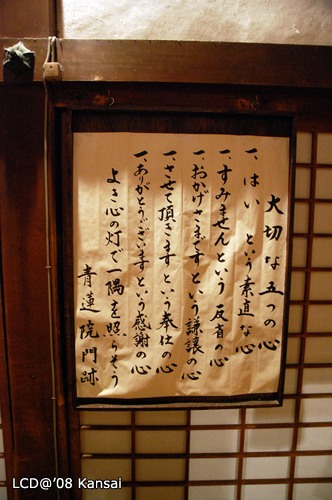 大切な五つの心
一、はい という素直な心
一、すみませんという 反省の心
一、おかげさまです という謙譲の心
一、させて頂きます という奉仕の心
一、ありがとうございます という感謝の心
よき心の灯で一隅を照らそう
青蓮院門跡
LCD@'08 Kansai